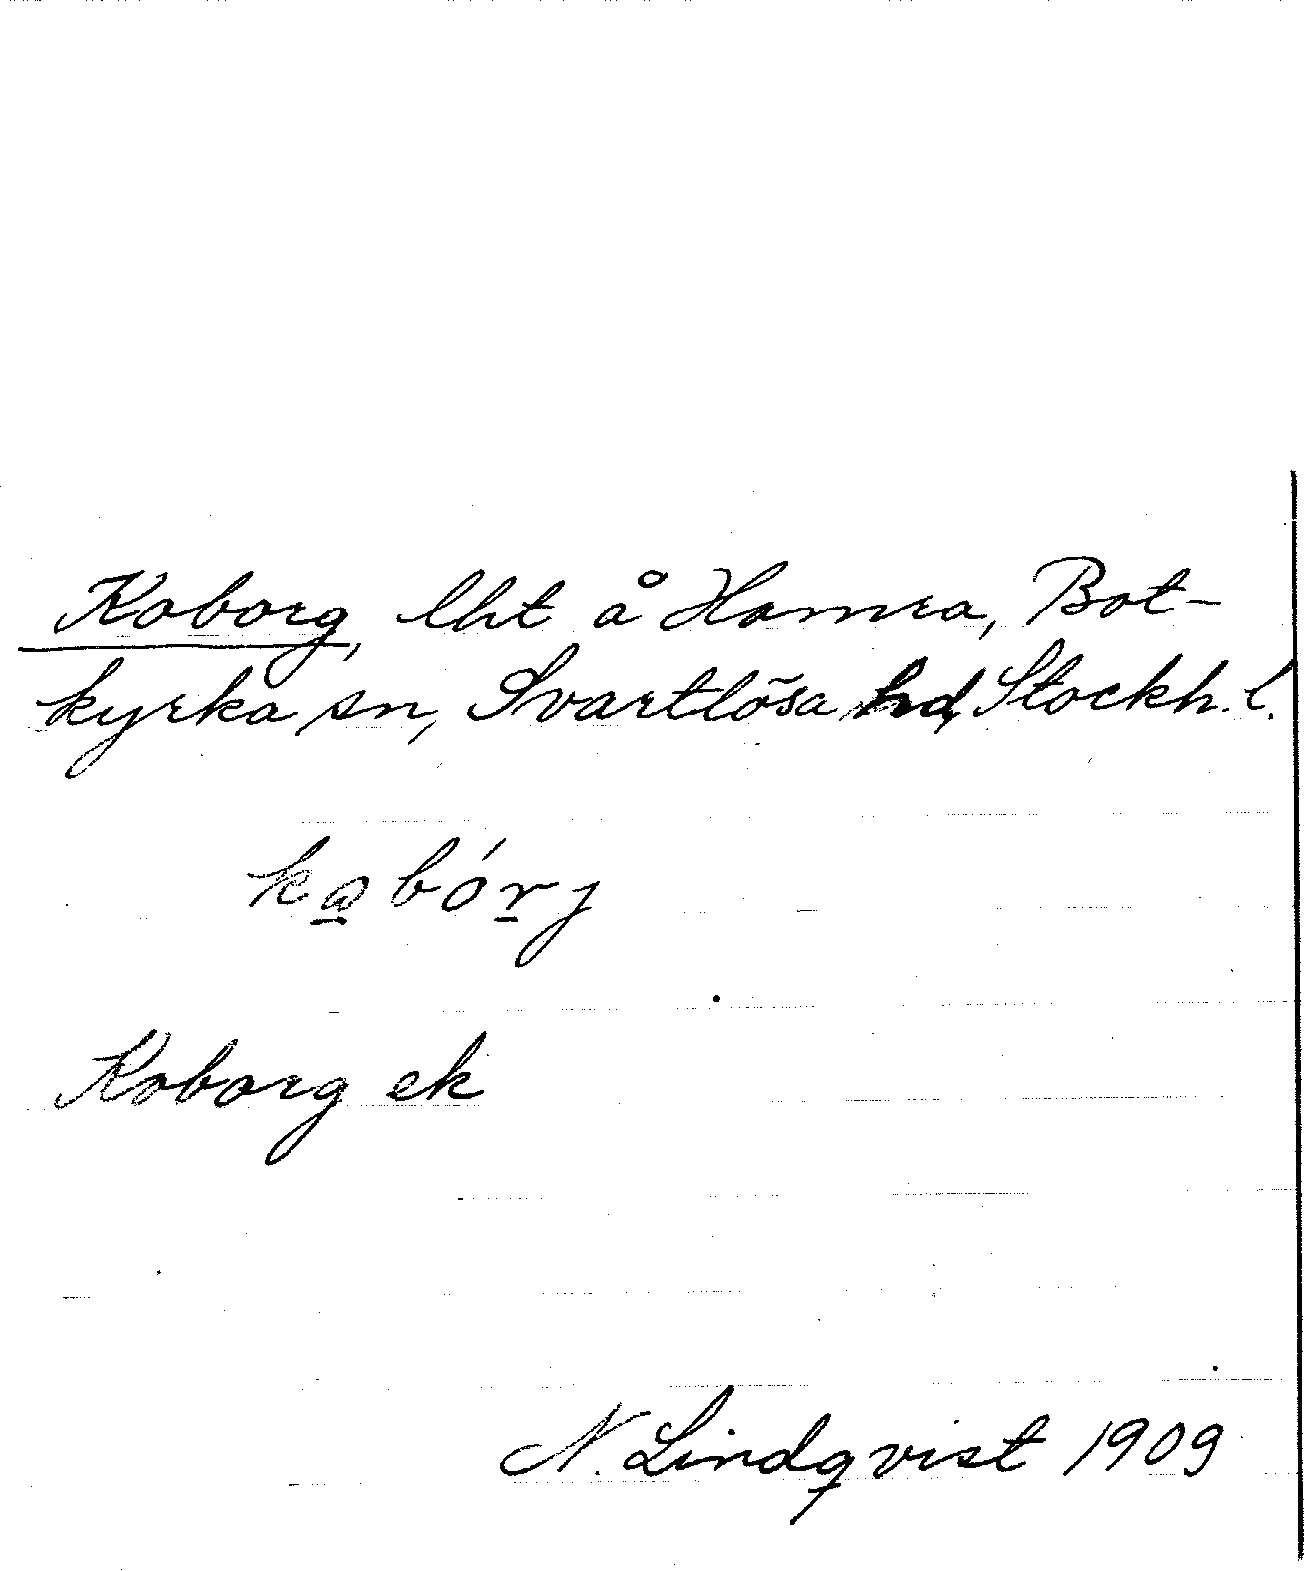 Koborg, lht å Hamra, Bot-
kyrka sn, Svartlösa hd, Stockh. l.
kωbórj
Koborg ek
N. Lindqvist 1909